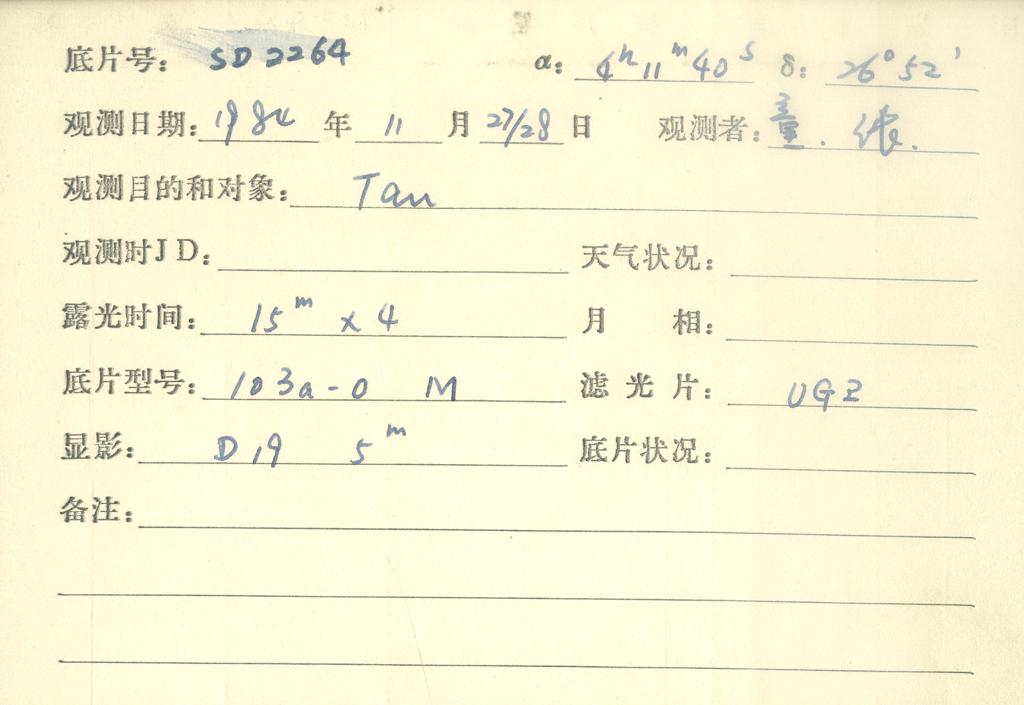 底片号: SD2264 α: 4h 11m 40s δ: 26° 52'
观测日期: 1984 年 11 月 27/28 日 观测者: 童.
观测目的和对象: Tau
观测时JD: 天气状况:
露光时间: 15m x 4 月 相:
底片型号: 103a-O M 滤光片: UG2
显影: D19 5m 底片状况:
备注: